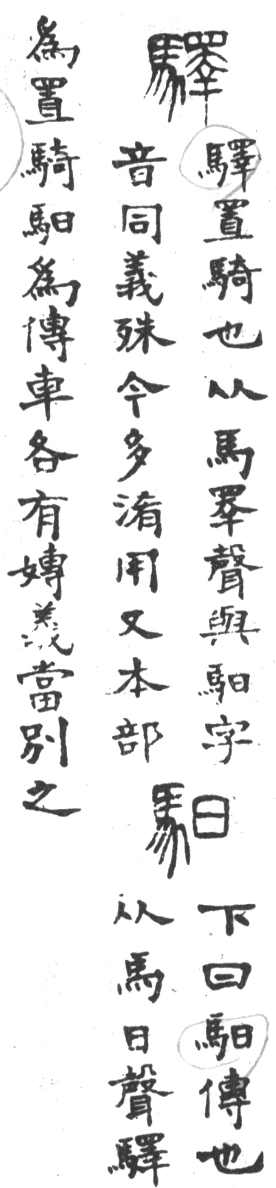 驛
驛置騎也从馬睪聲與馹字
音同義殊今多淆用又本部
馹
下曰馹傳也
从馬日聲驛
爲置騎馹爲傳車各有嫥義當別之